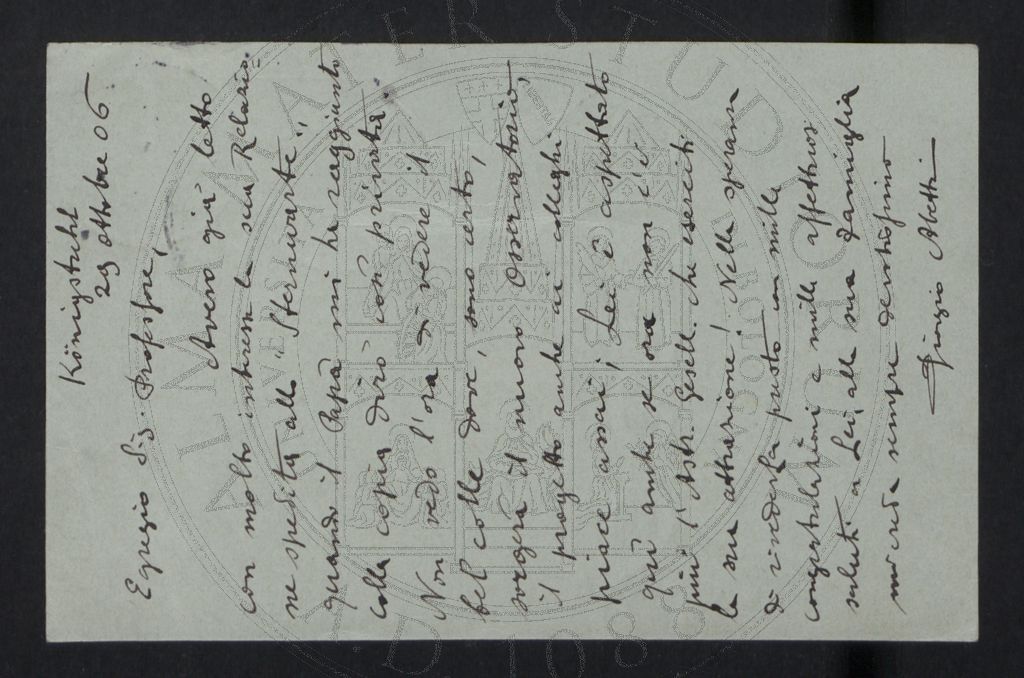 Königstuhl
29 ottobre 06
Egregio Sig. Professore,
Avevo già letto
con molto interesse la sua Relazio-
ne spedita allo "Sternwarte",
quando il Papà mi ha raggiunto
colla copia dirò così privata.
Non vedo l'ora di vedere il
bel colle dove, sono certo,
sorgerà il nuovo Osservatorio,
il progetto anche ai colleghi
piace assai! Lei è aspettato
qui anche se ora non c'è
più l'Astr. Gesell. che eserciti
la sua attrazione! Nella speranza
di rivederla presto con mille
congratulazioni e mille affettuosi
saluti a Lei, alla sua famiglia
mi creda sempre devotissimo
Giorgio Abetti
ALMA MATER STUDIORUM
A.D. 1088